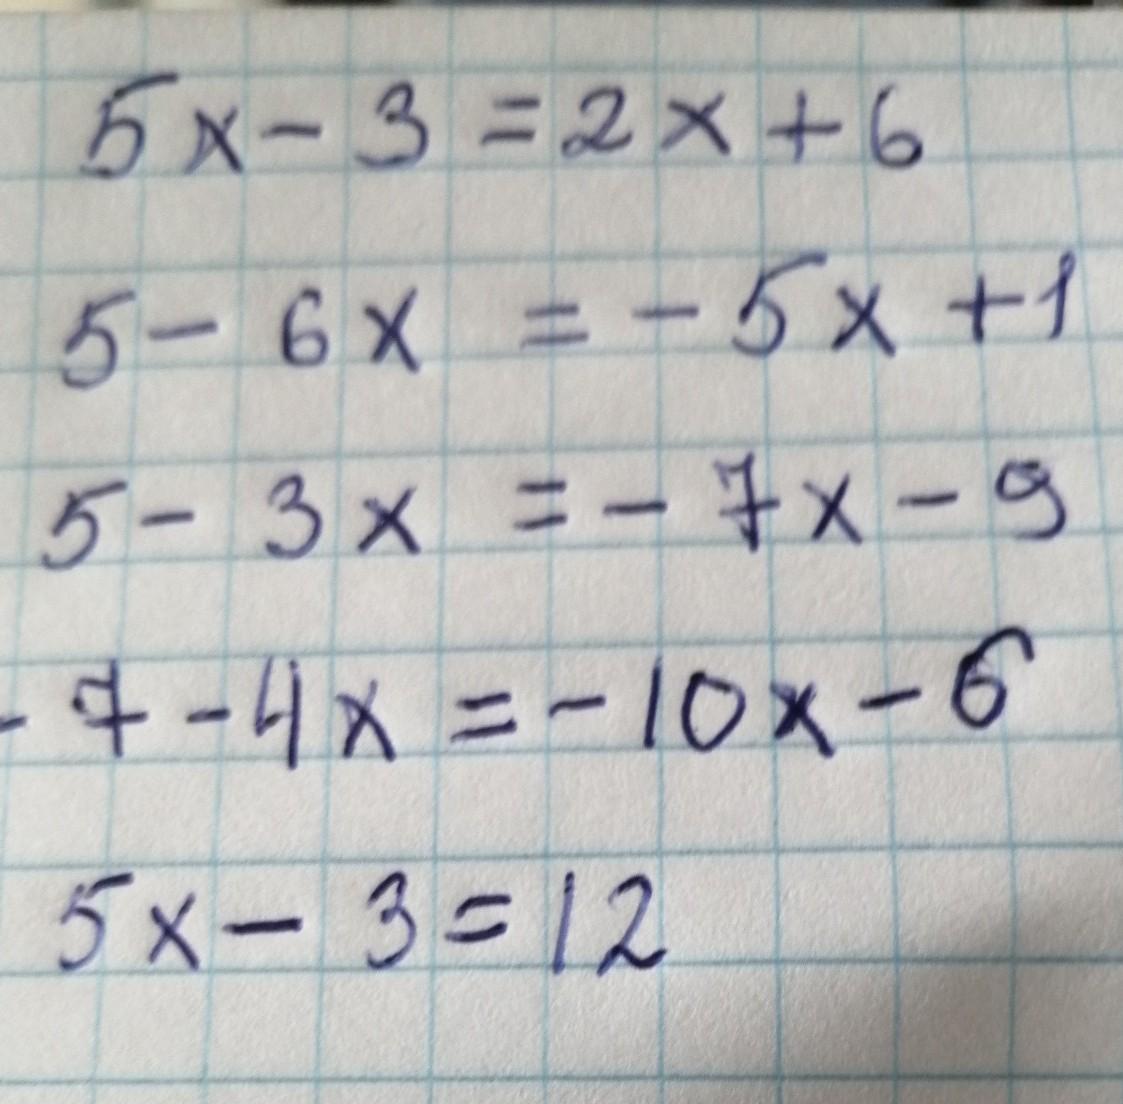 5x - 3 = 2x + 6
5 - 6x = - 5x + 1
5 - 3x = - 7x - 9
- 7 - 4x = - 10x - 6
5x - 3 = 12